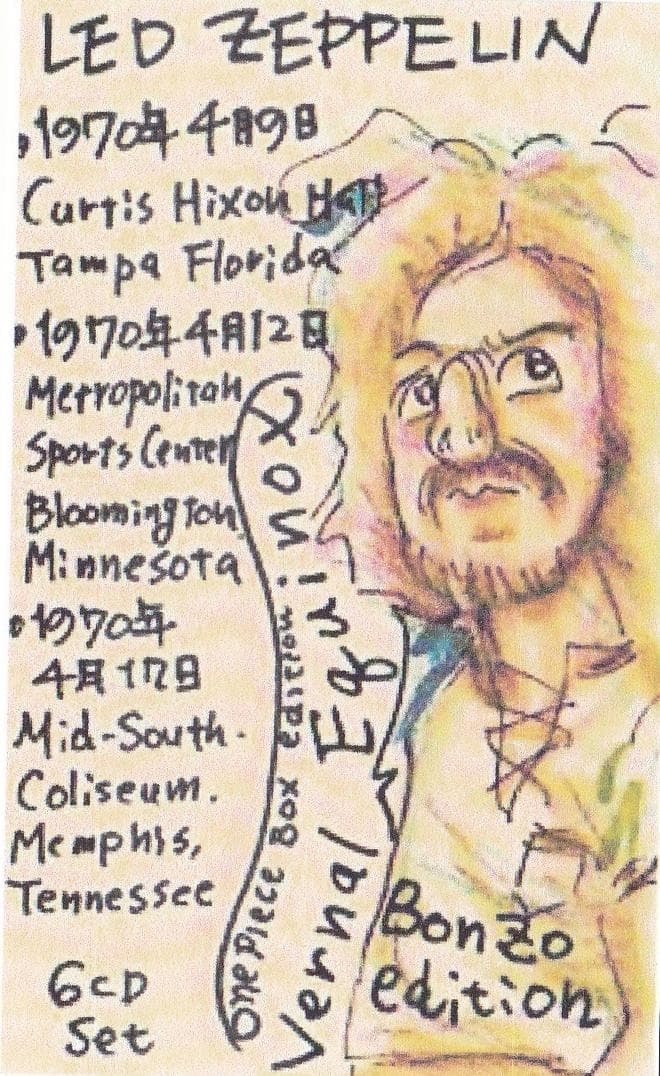 LED ZEPPELIN
・1970年4月9日
Curtis Hixon Hall
Tampa Florida
・1970年4月12日
Metropolitan
Sports Center
Bloomington
Minnesota
・1970年
4月17日
Mid-South.
Coliseum.
Memphis,
Tennessee
6CD
Set
One Piece Box edition
Vernal Equinox
Bonzo
edition